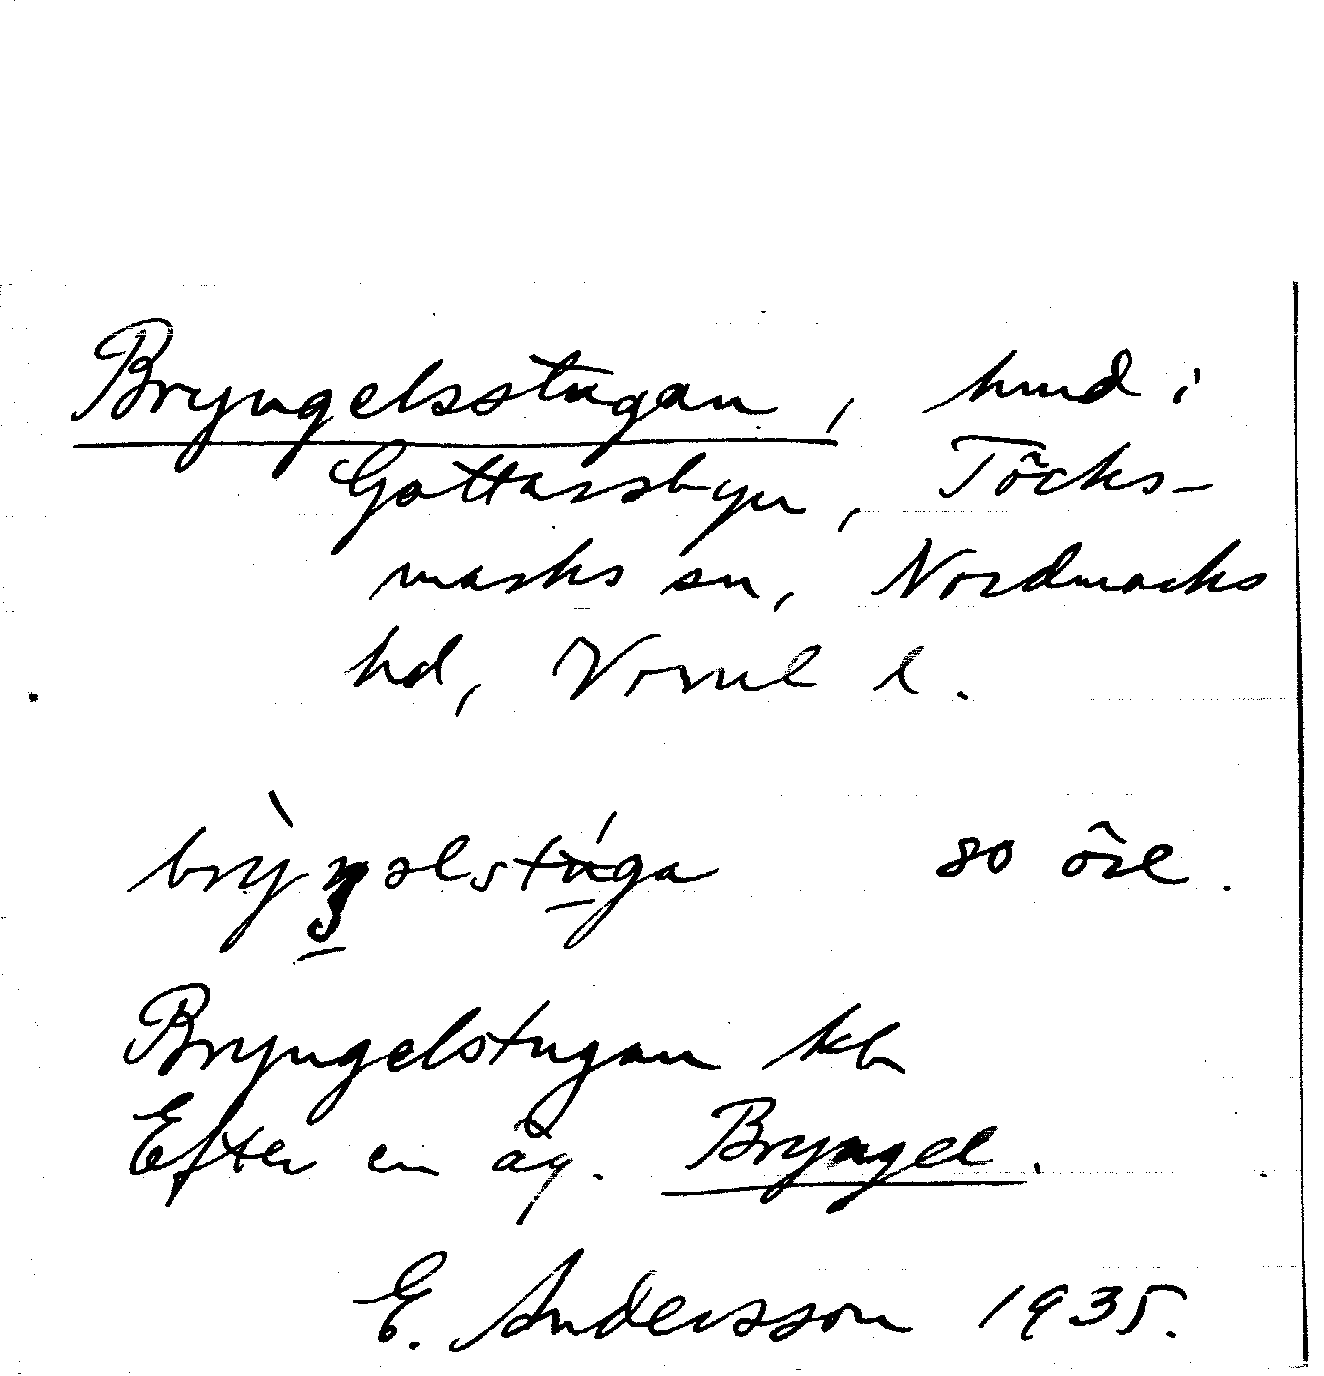 Bryngelsstugan, hmd i
Gottarsbyn, Töcks-
marks sn, Nordmarks
hd, Vrml l.
80 öre.
Bryngelstugan kb
Efter en äg. Bryngel.
E. Andersson 1935.